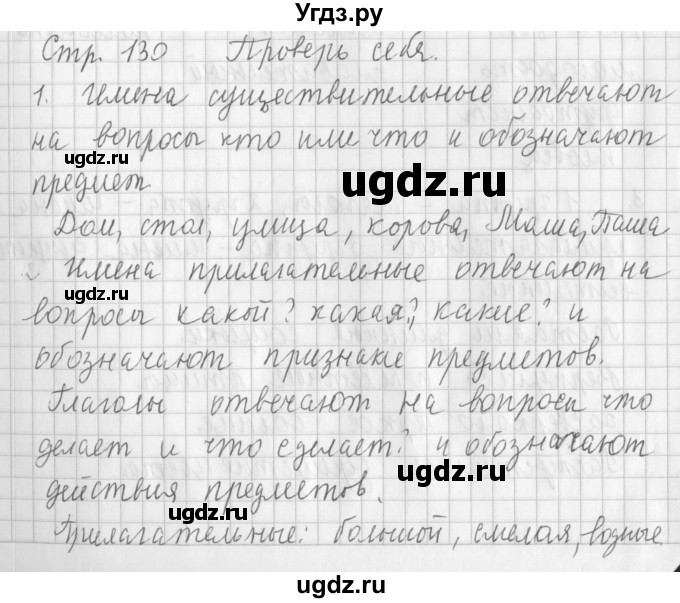 Угdz.ру
Стр. 130 Проверь себя.
1. Имена существительные отвечают
на вопросы кто или что и обозначают
ugdz.ru ugdz.ru
предмет.
ugdz.ru
Дом, стол, улица, корова, Маша, Паша
2. Имена прилагательные отвечают на
ugdz.ru ugdz.ru
вопросы какой? какая?, какие? и
обозначают признаке предметов.
ugdz.ru
Глаголы отвечают на вопросы что
делает и что сделает? и обозначают
ugdz.ru
действия предметов.
ugdz.ru
Прилагательные: большой, смелая,
ugdz.ru